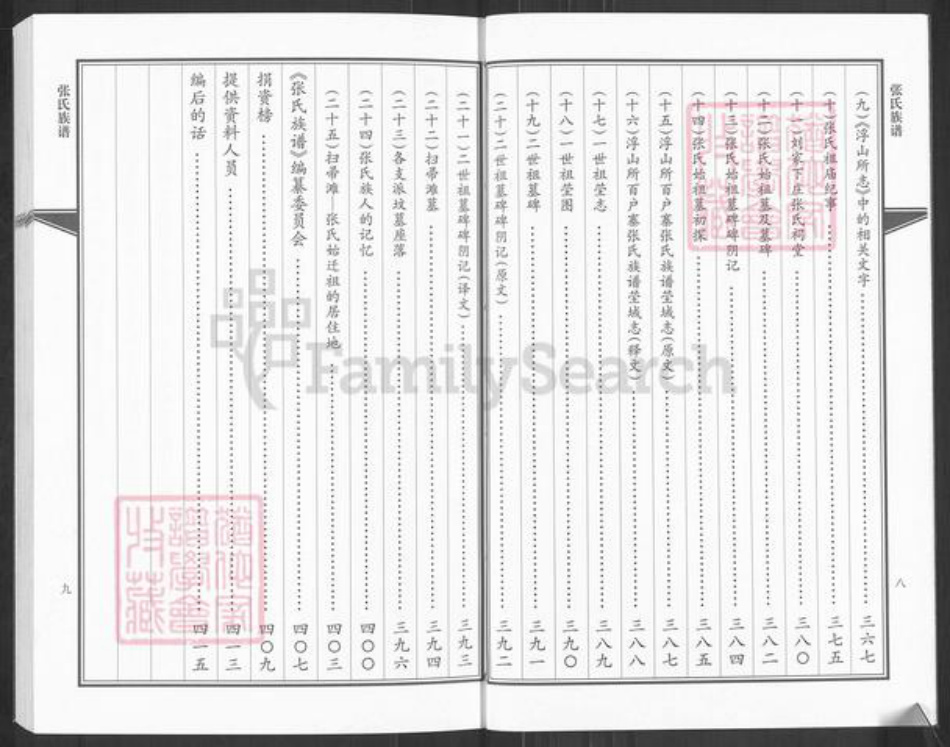 张氏族谱
(九)《浮山所志》中的相关文字……三六七
(十)张氏祖庙纪事……三七五
(十一)刘家下庄张氏祠堂……三八〇
(十二)张氏始祖墓及墓碑……三八二
(十三)张氏始祖墓碑碑阴记……三八四
(十四)张氏始祖墓初探……三八五
(十五)浮山所百户寨张氏族谱茔域志(原文)……三八七
(十六)浮山所百户寨张氏族谱茔域志(释文)……三八八
(十七)一世祖茔志……三八九
(十八)一世祖茔图……三九〇
(十九)二世祖墓碑……三九一
(二十)二世祖墓碑碑阴记(原文)……三九二
八
(二十一)二世祖墓碑碑阴记(译文)……三九三
(二十二)扫帚滩墓……三九四
(二十三)各支派坟墓座落……三九六
(二十四)张氏族人的记忆……四〇〇
(二十五)扫帚滩——张氏始迁祖的居住地……四〇三
《张氏族谱》编纂委员会……四〇七
捐资榜……四〇九
提供资料人员……四一三
编后的话……四一五
张氏族谱
九
FamilySearch